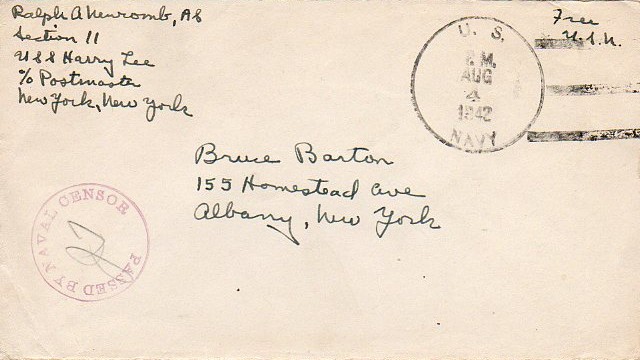 Ralph A Newcomb, AS
Section 11
USS Harry Lee
c/o Postmaster
New York, New York
Free
U.S.N.
U. S.
P.M.
AUG
4
1942
NAVY
Bruce Barton
155 Homestead Ave
Albany, New York
PASSED BY NAVAL CENSOR